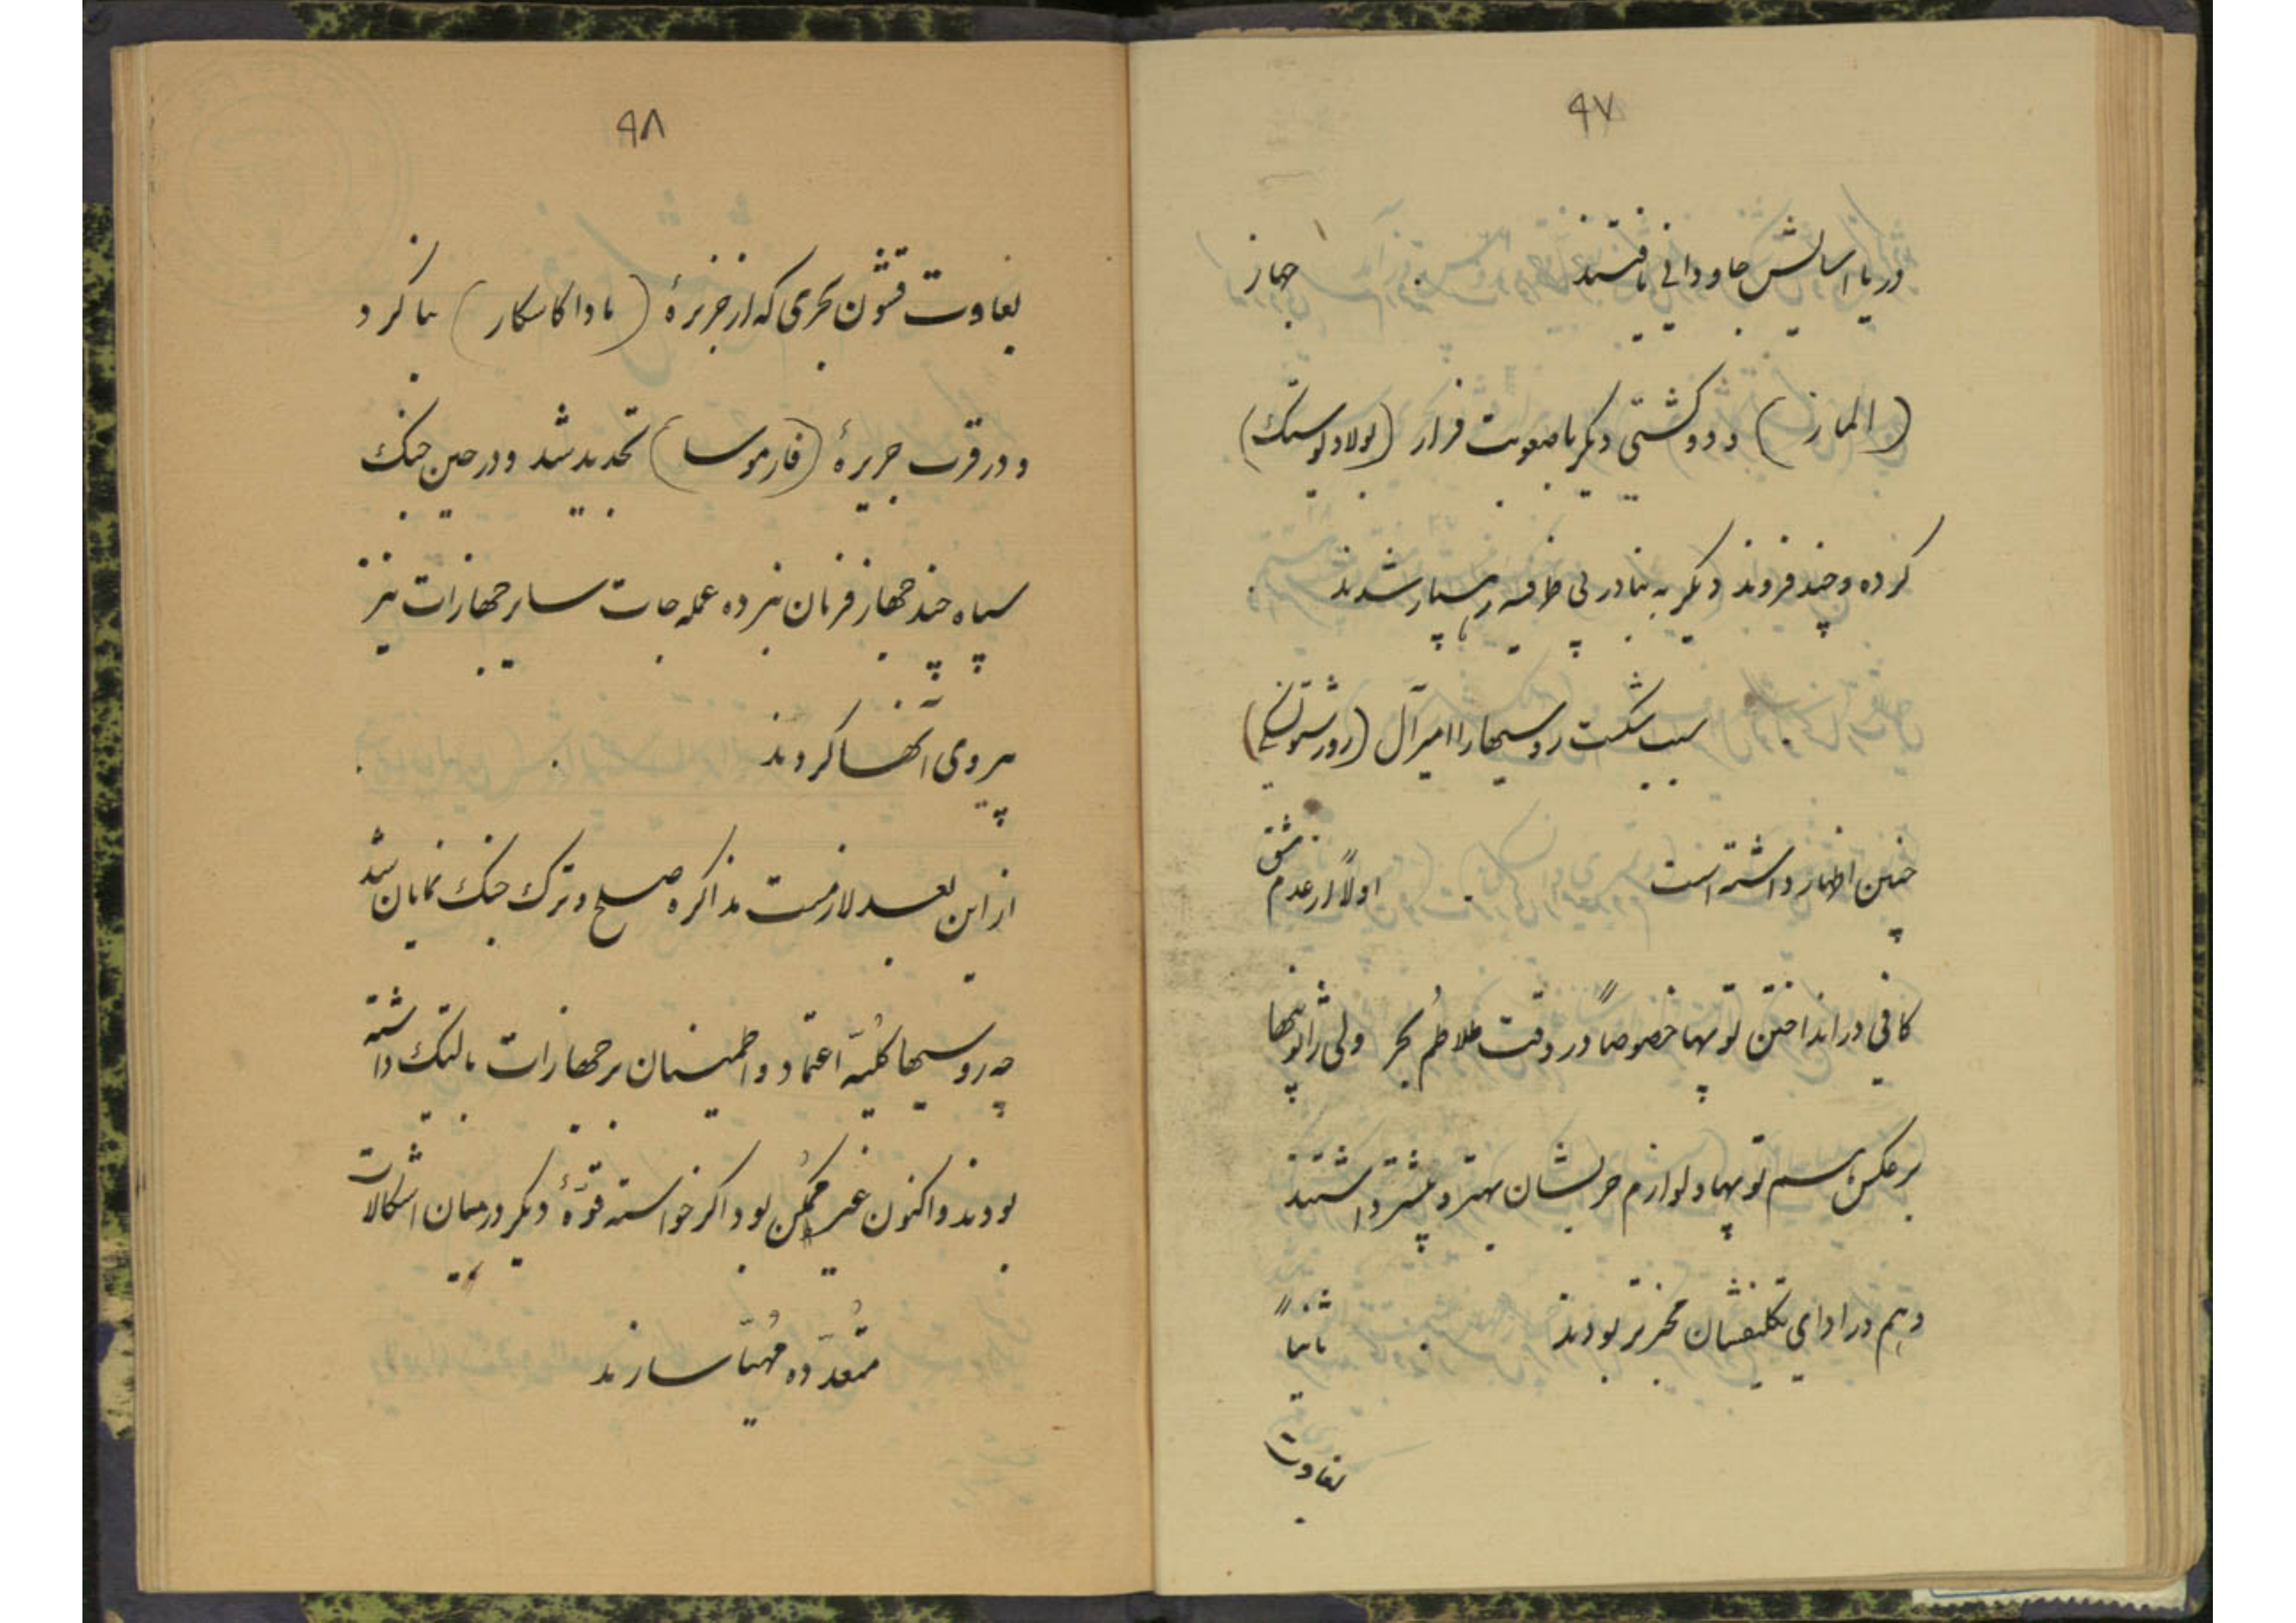 ۹۷
دریا اسایش جاودانی یافتند جهاز
(الماز) و دو کشتی دیگر با صعوبت فرار (بولادیوستک)
کرده و چند فروند دیگر به بنادر بی طرفیه رهسپار شدند
سبب شکست روسیها را امیرآل (روژستونسکی)
چنین اظهار داشته است اولاً از عدم مشق
کافی در انداختن توپها خصوصاً در وقت طلاطُم بحر ولی ژاپونیها
برعکس هم توپها و لوازم حربشان بهتر و بیشتر داشتند
و هم در ادای تکلیفشان مخبرتر بودند ثانیاً
بغاوت
۹۸
بغاوت قشون بحری که از جزیرهٔ (ماداکاسکار) بنا کرد
و در قرب جزیرهٔ (فارموسا) تجدید شد و در حین جنگ
سپاه چند جهاز فرمان نبرده عمله جات سایر جهازات نیز
پیروی آنها کردند
از این بعد لازمست مذاکره صلح و ترک جنگ نمایان شد
چه روسیها کُلیّه اعتماد و اطمینان بر جهازات بالتیک داشته
بودند و اکنون غیر مُمکن بود اگر خواسته قوّهٔ دیگر در میان اشکالات
مُتعدّده مُهیّا سازند